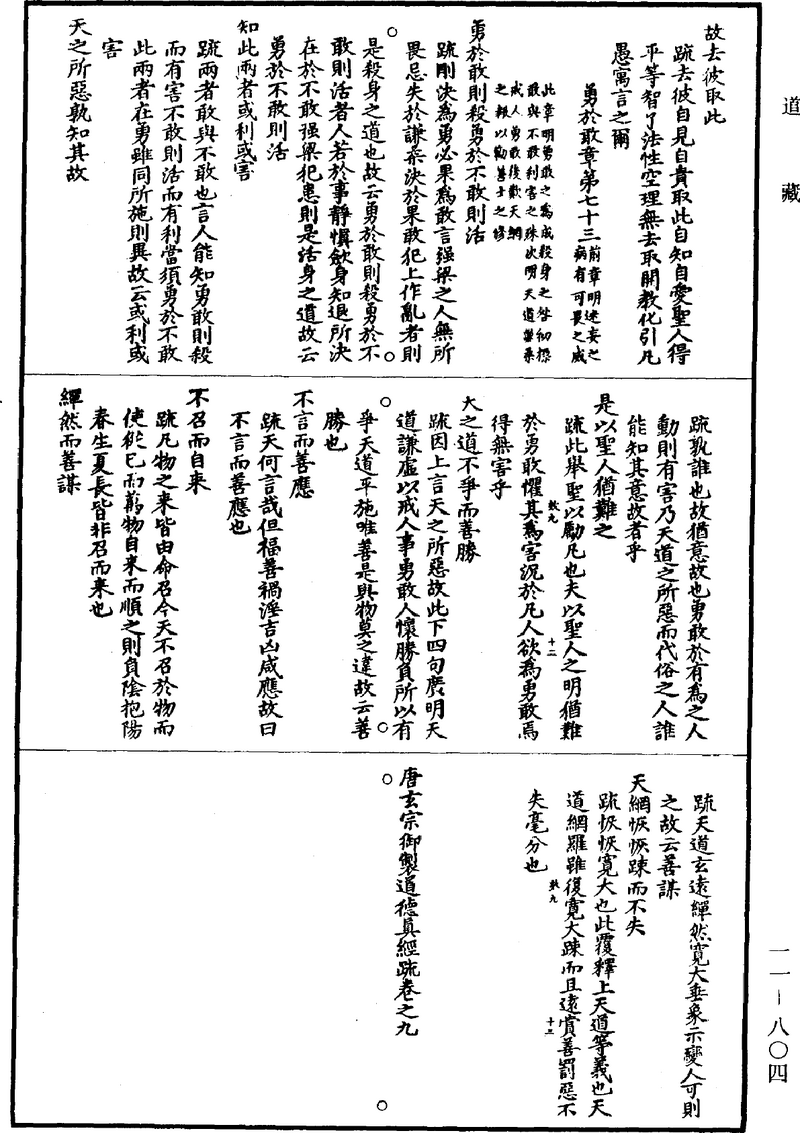 道藏
故去彼取此
疏去彼自見自貴取此自知自愛聖人得
平等智了法性空理無去取開教化引凡
愚寓言之爾
勇於敢章第七十三
前章明迷妄之
病有可畏之威
此章明勇敢之為咸殺身之咎初標
敢與不敢利害之殊次明天道謙柔
戒人勇敢後歎天網
之報以勸善士之修
勇於敢則殺勇於不敢則活
疏剛決為勇必果為敢言强梁之人無所
畏忌失於謙柔決於果敢犯上作亂者則
是殺身之道也故云勇於敢則殺勇於不
敢則活者人若於事靜慎斂身知退所決
在於不敢强梁犯患則是活身之道故云
勇於不敢則活
知此兩者或利或害
疏兩者敢與不敢也言人能知勇敢則殺
而有害不敢則活而有利當須勇於不敢
此兩者在勇雖同所施則異故云或利或
害
天之所惡孰知其故
疏孰誰也故猶意故也勇敢於有為之人
動則有害乃天道之所惡而代俗之人誰
能知其意故者乎
是以聖人猶難之
疏此舉聖以勵凡也夫以聖人之明猶難
敖九 十二
於勇敢懼其為害況於凡人欲為勇敢焉
得無害乎
天之道不爭而善勝
疏因上言天之所惡故此下四句廣明天
道謙虛以戒人事勇敢人懷勝負所以有
爭天道平施唯善是與物莫之違故云善
勝也
不言而善應
疏天何言哉但福善禍淫吉凶咸應故曰
不言而善應也
不召而自來
疏凡物之來皆由命召今天不召於物而
使從已而萬物自來而順之則負陰抱陽
春生夏長皆非召而來也
繟然而善謀
疏天道玄遠繟然寬大垂象示變人可則
之故云善謀
天網恢恢踈而不失
疏恢恢寬大也此覆釋上天道等義也天
道網羅雖復寬大踈而且遠賞善罰惡不
敖九 十三
失毫分也
唐玄宗御製道德真經疏卷之九
一一－八〇四